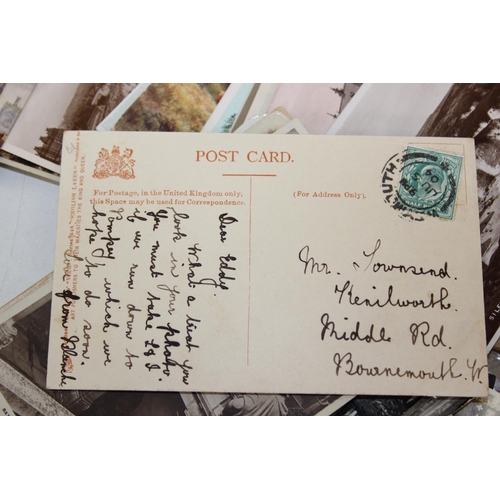 POST CARD.
For Postage, in the United Kingdom only,
this Space may be used for Correspondence.
(For Address Only.)
Dear Eddy.
What a treat you
look in your photo
You must take L & I
if we run down to
Pompey which we
hope to do soon.
from Blanche
Mr. Townsend.
Kenilworth.
Middle Rd.
Bournemouth W.